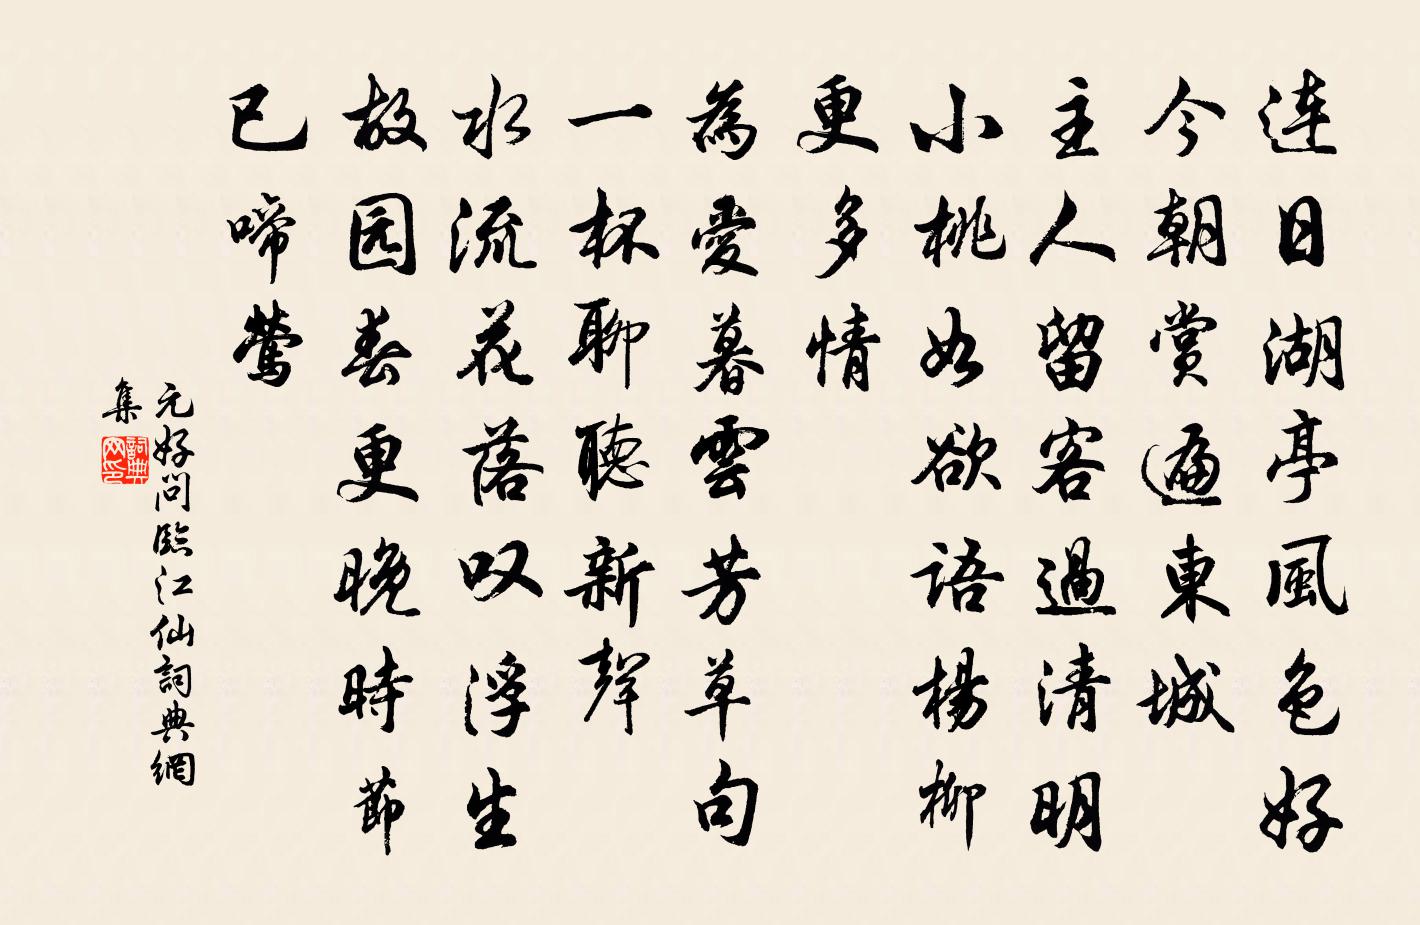 连日湖亭風色好
今朝賞遍東城
主人留客過清明
小桃如欲語楊柳
更多情
為愛暮雲芳草句
一杯聊聽新聲
水流花落叹浮生
故园春更晚時節
已啼鶯
元好問臨江仙詞典網
集
詞典網印